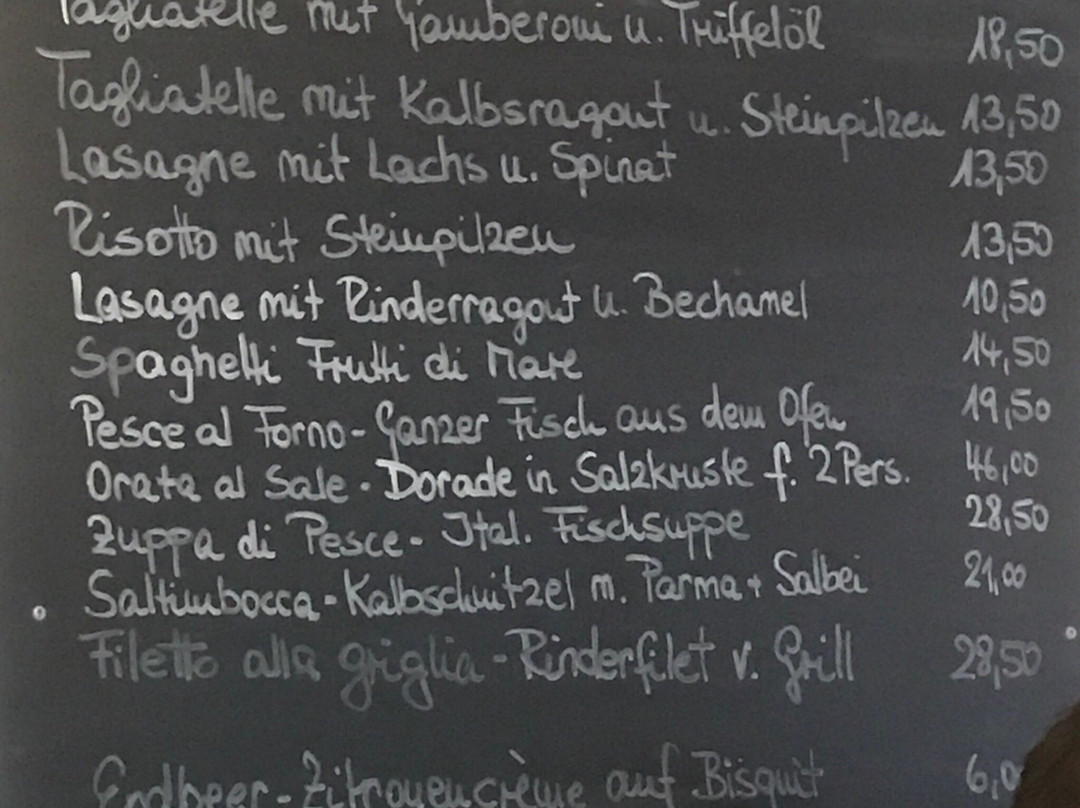 Tagliatelle mit Gamberoni u. Trüffelöl 18,50
Tagliatelle mit Kalbsragout u. Steinpilzen 13,50
Lasagne mit Lachs u. Spinat 13,50
Risotto mit Steinpilzen 13,50
Lasagne mit Rinderragout u. Bechamel 10,50
Spaghetti Frutti di Mare 14,50
Pesce al Forno - Ganzer Fisch aus dem Ofen 19,50
Orata al Sale - Dorade in Salzkruste f. 2 Pers. 46,00
Zuppa di Pesce - Ital. Fischsuppe 28,50
Saltimbocca - Kalbschnitzel m. Parma + Salbei 21,00
Filetto alla griglia - Rinderfilet v. Grill 28,50
Erdbeer - Zitronencrème auf Bisquit